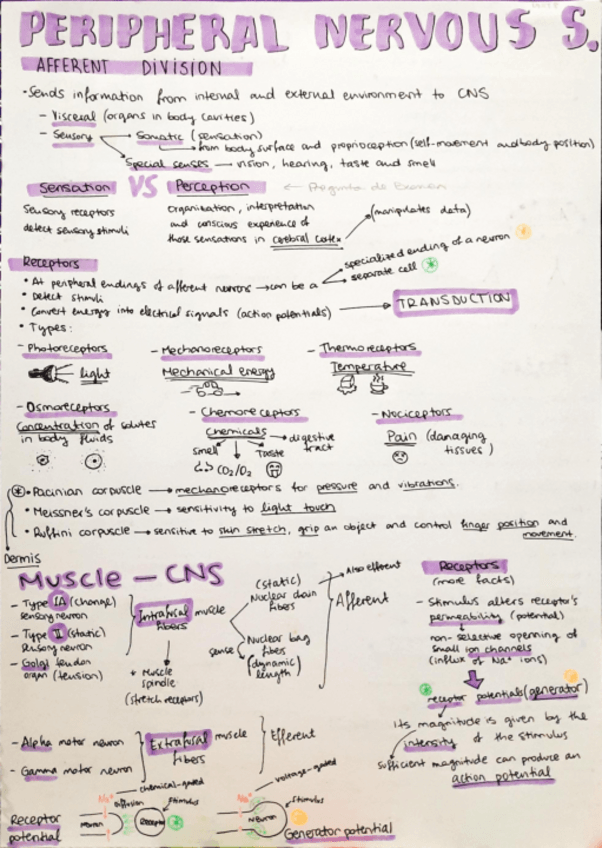 PERIPHERAL NERVOUS S.
AFFERENT DIVISION
• Sends information from internal and external environment to CNS
- Visceral (organs in body cavities)
- Sensory → Somatic (sensation)
→ from body surface and proprioception (self-movement and body position)
Special senses → vision, hearing, taste and smell
Sensation VS Perception ← Pregunta de Examen
Sensory receptors
detect sensory stimuli
organization, interpretation
and conscious experience of
those sensations in cerebral cortex
(manipulates data)
Receptors
• At peripheral endings of afferent neurons → can be a
specialized ending of a neuron
separate cell
• Detect stimuli
• Convert energy into electrical signals (action potentials) → TRANSDUCTION
• Types:
- Photoreceptors
light
- Mechanoreceptors
Mechanical energy
- Thermoreceptors
Temperature
- Osmoreceptors
Concentration of solutes
in body fluids
- Chemoreceptors
Chemicals → digestive
tract
smell
CO2/O2
Taste
- Nociceptors
Pain (damaging
tissues)
• Pacinian corpuscle → mechanoreceptors for pressure and vibrations.
• Meissner's corpuscle → sensitivity to light touch
• Ruffini corpuscle → sensitive to skin stretch, grip an object and control finger position and
movement.
Dermis
Muscle - CNS
- Type IA (change)
sensory neuron
- Type II (static)
sensory neuron
- Golgi tendon
organ (tension)
Intrafusal muscle
fibers
* Muscle
spindle
(stretch receptors)
(static)
Nuclear chain
fibers
sense
Nuclear bag
fibers
(dynamic)
length
Also efferent
Afferent
- Alpha motor neuron
- Gamma motor neuron
Extrafusal muscle
fibers
Efferent
Receptors
(more facts)
- Stimulus alters receptor's
permeability (potential)
non-selective openning of
small ion channels
(influx of Na+ ions)
receptor potentials (generator)
Its magnitude is given by the
intensity of the stimulus
Sufficient magnitude can produce an
action potential
Receptor
potential
chemical-gated
Na+
diffusion
stimulus
Neuron
Receptor
voltage-gated
Na+
stimulus
Neuron
Generator potential